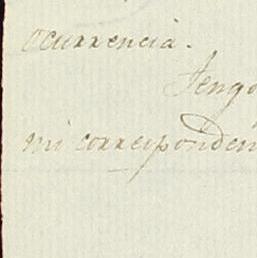 ocurrencia.
Tengo
mi corresponden